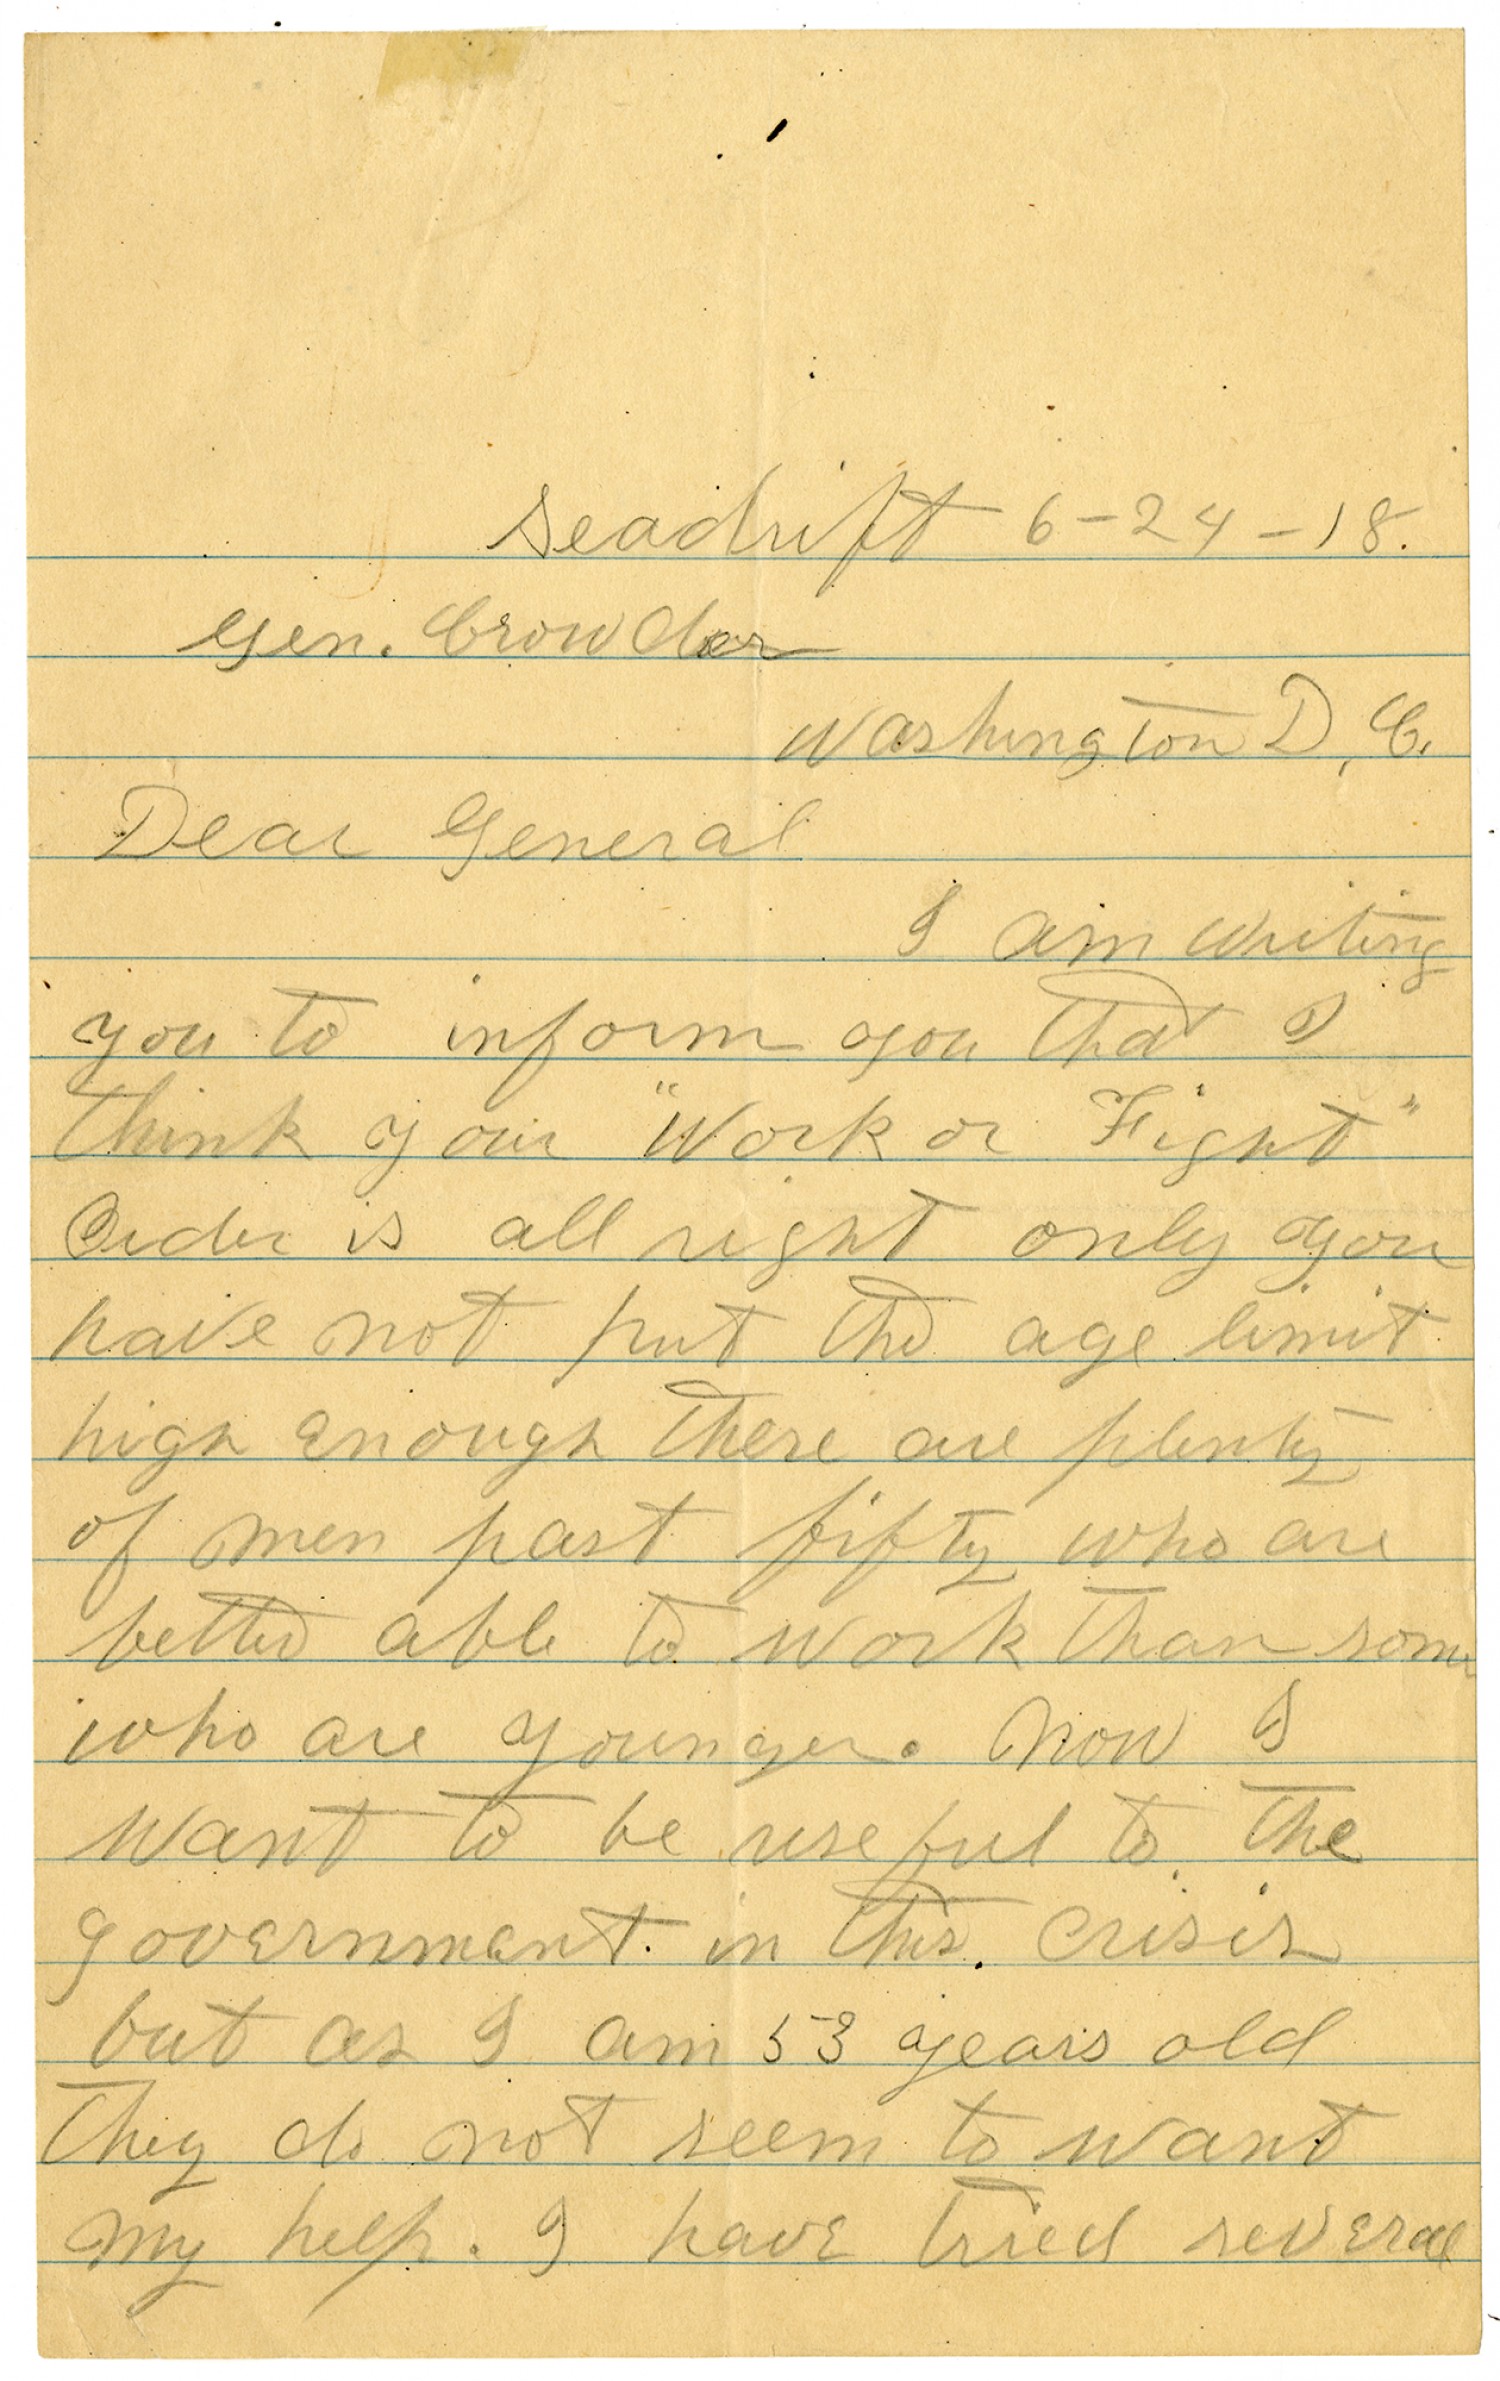 Seadrift 6-24-18.
Gen. Crowder
Washington D, C.
Dear General
I am writing
you to inform you that I
think your "Work or Fight"
Order is all right only you
have not put the age limit
high enough there are plenty
of men past fifty who are
better able to work than some
who are younger. Now I
want to be useful to the
government. in this. crisis
but as I am 53 years old
they do not seem to want
my help. I have tried several